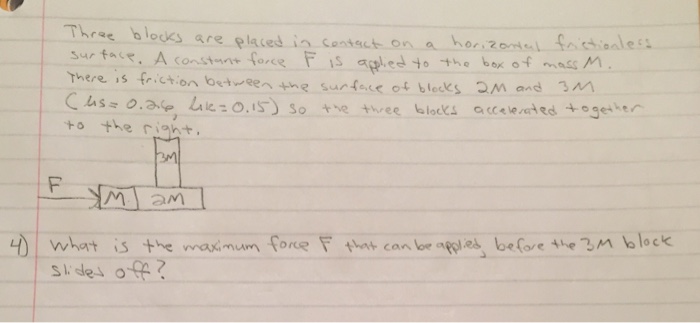 Three blocks are placed in contact on a horizontal frictionless
surface. A constant force F is applied to the box of mass M.
There is friction between the surface of blocks 2M and 3M
(μs = 0.26, μk = 0.15) so the three blocks accelerated together
to the right.
3M
F
M 2M
4) What is the maximum force F that can be applied, before the 3M block
slides off?